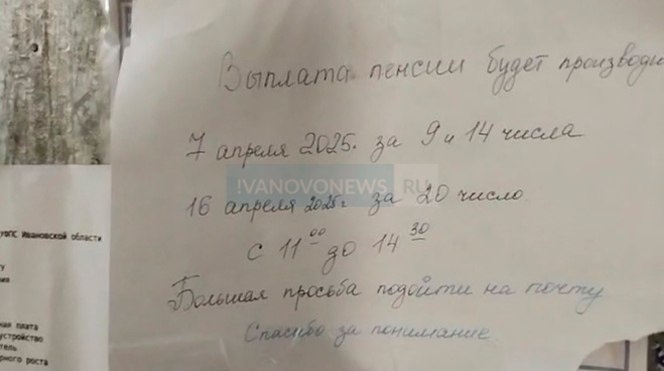 Выплата пенсии будет производи
7 апреля 2025г. за 9 и 14 числа
!VANOVONEWS.RU
16 апреля 2025г за 20 число
с 11 00 до 14 30
Большая просьба подойти на почту
Спасибо за понимание
УФПС Ивановской области
ная плата
устройство
тель
рного роста